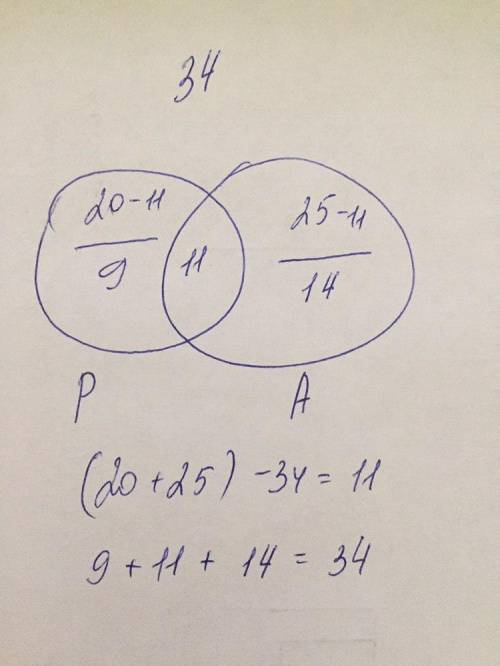 34
20-11 25-11
9 11 14
P A
(20+25) -34 = 11
9 + 11 + 14 = 34